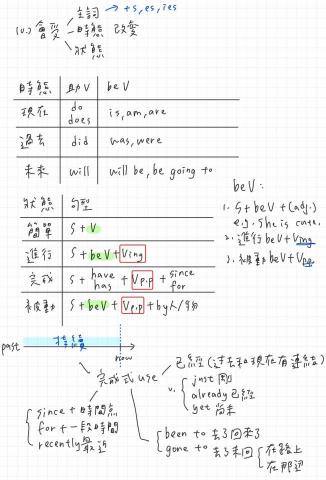 主詞 → +s,es,ies
(v.) 會受 時態 改變
狀態
時態 助V beV
現在 do does is, am, are
過去 did was, were
未來 will will be, be going to
beV:
1. S+beV+(adj.)
e.g. She is cute.
2. 進行beV+Ving
3. 被動beV+Vpp
狀態 句型
簡單 S+V
進行 S+beV+Ving
完成 S+have has+Vp.p+since for
被動 S+beV+Vp.p+by人/物
持續
past now
完成式 use
已經(過去和現在有連結)
v. just 剛
already 已經
yet 尚未
since+時間點
for+一段時間
recently 最近
been to 去了回來了
gone to 去了未回 在路上
在那邊